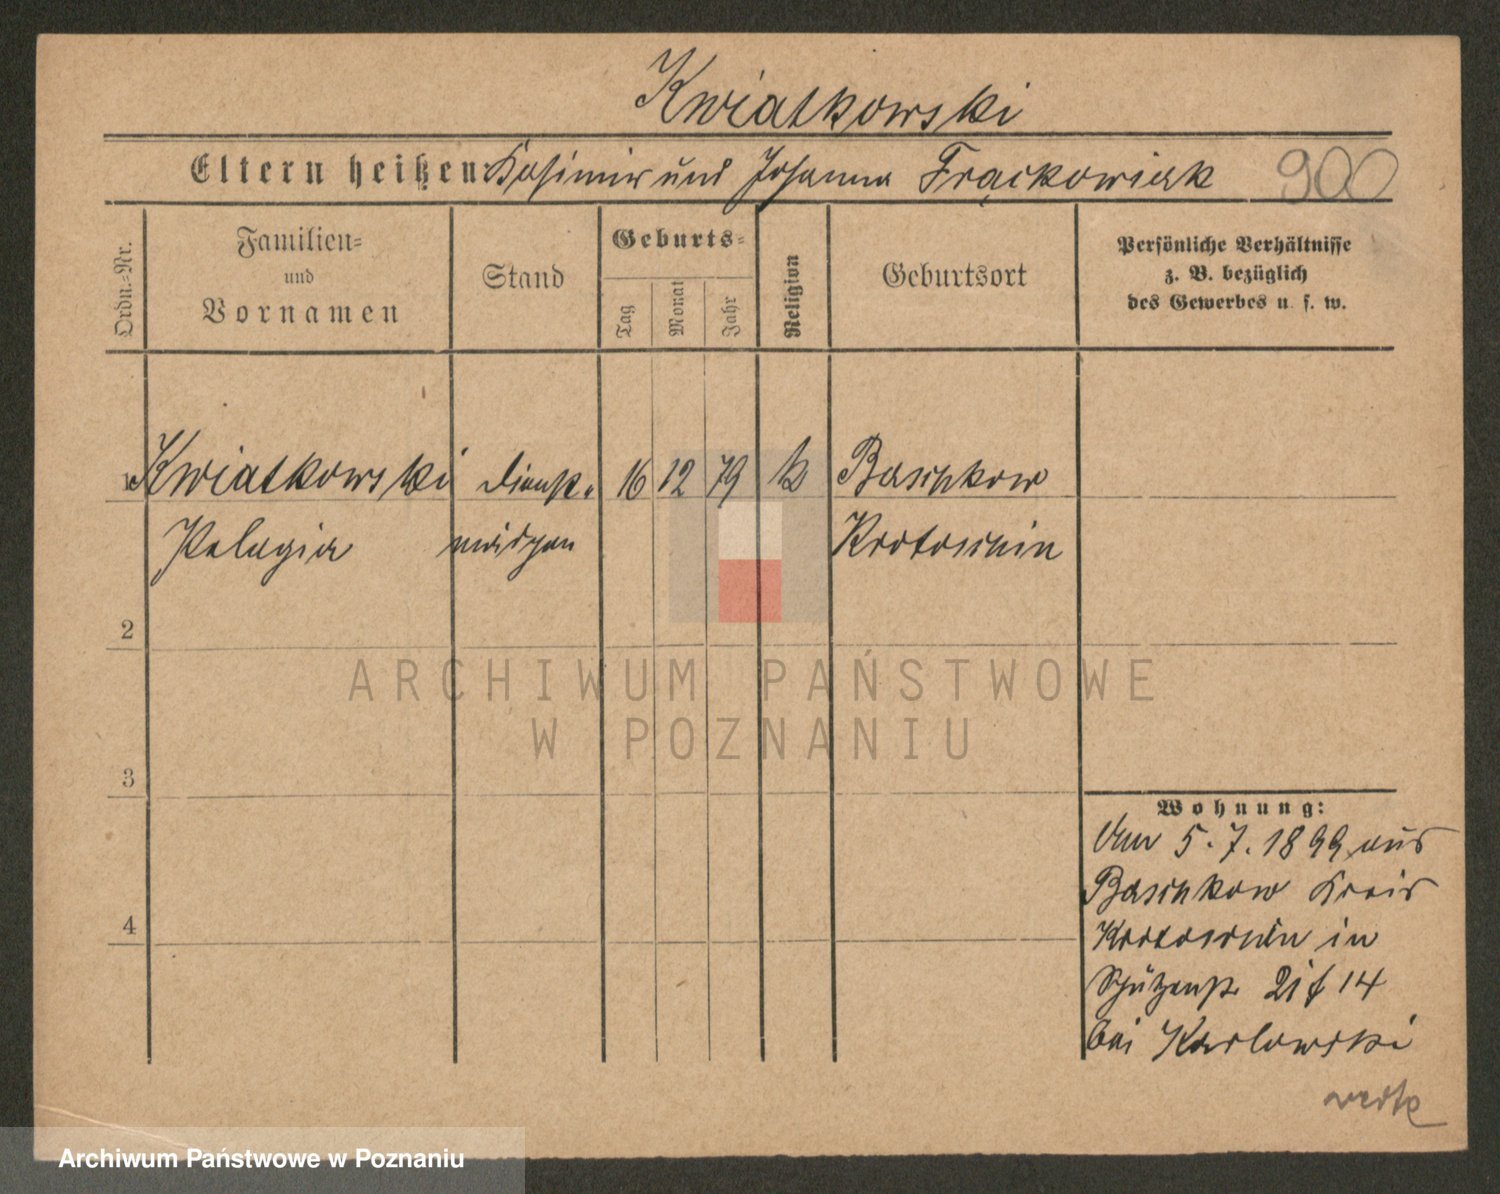 Kwiatkowski
Eltern heißen: Kasimir und Johanna Frąckowiak 900
Ordn.=Nr.
Familien=
und
Vornamen
Stand
Geburts=
Tag
Monat
Jahr
Religion
Geburtsort
Persönliche Verhältnisse
z. B. bezüglich
des Gewerbes u. s. w.
1 Kwiatkowski Dienst- 16 12 79 k Baschkow
Pelagia mädchen Krotoschin
2
ARCHIWUM PAŃSTWOWE
W POZNANIU
3
Wohnung:
Am 5.7.1899 aus
Baschkow Kreis
4
Krotoschin in
Schützenstr 21 f 14
bei Karlowski
Archiwum Państwowe w Poznaniu